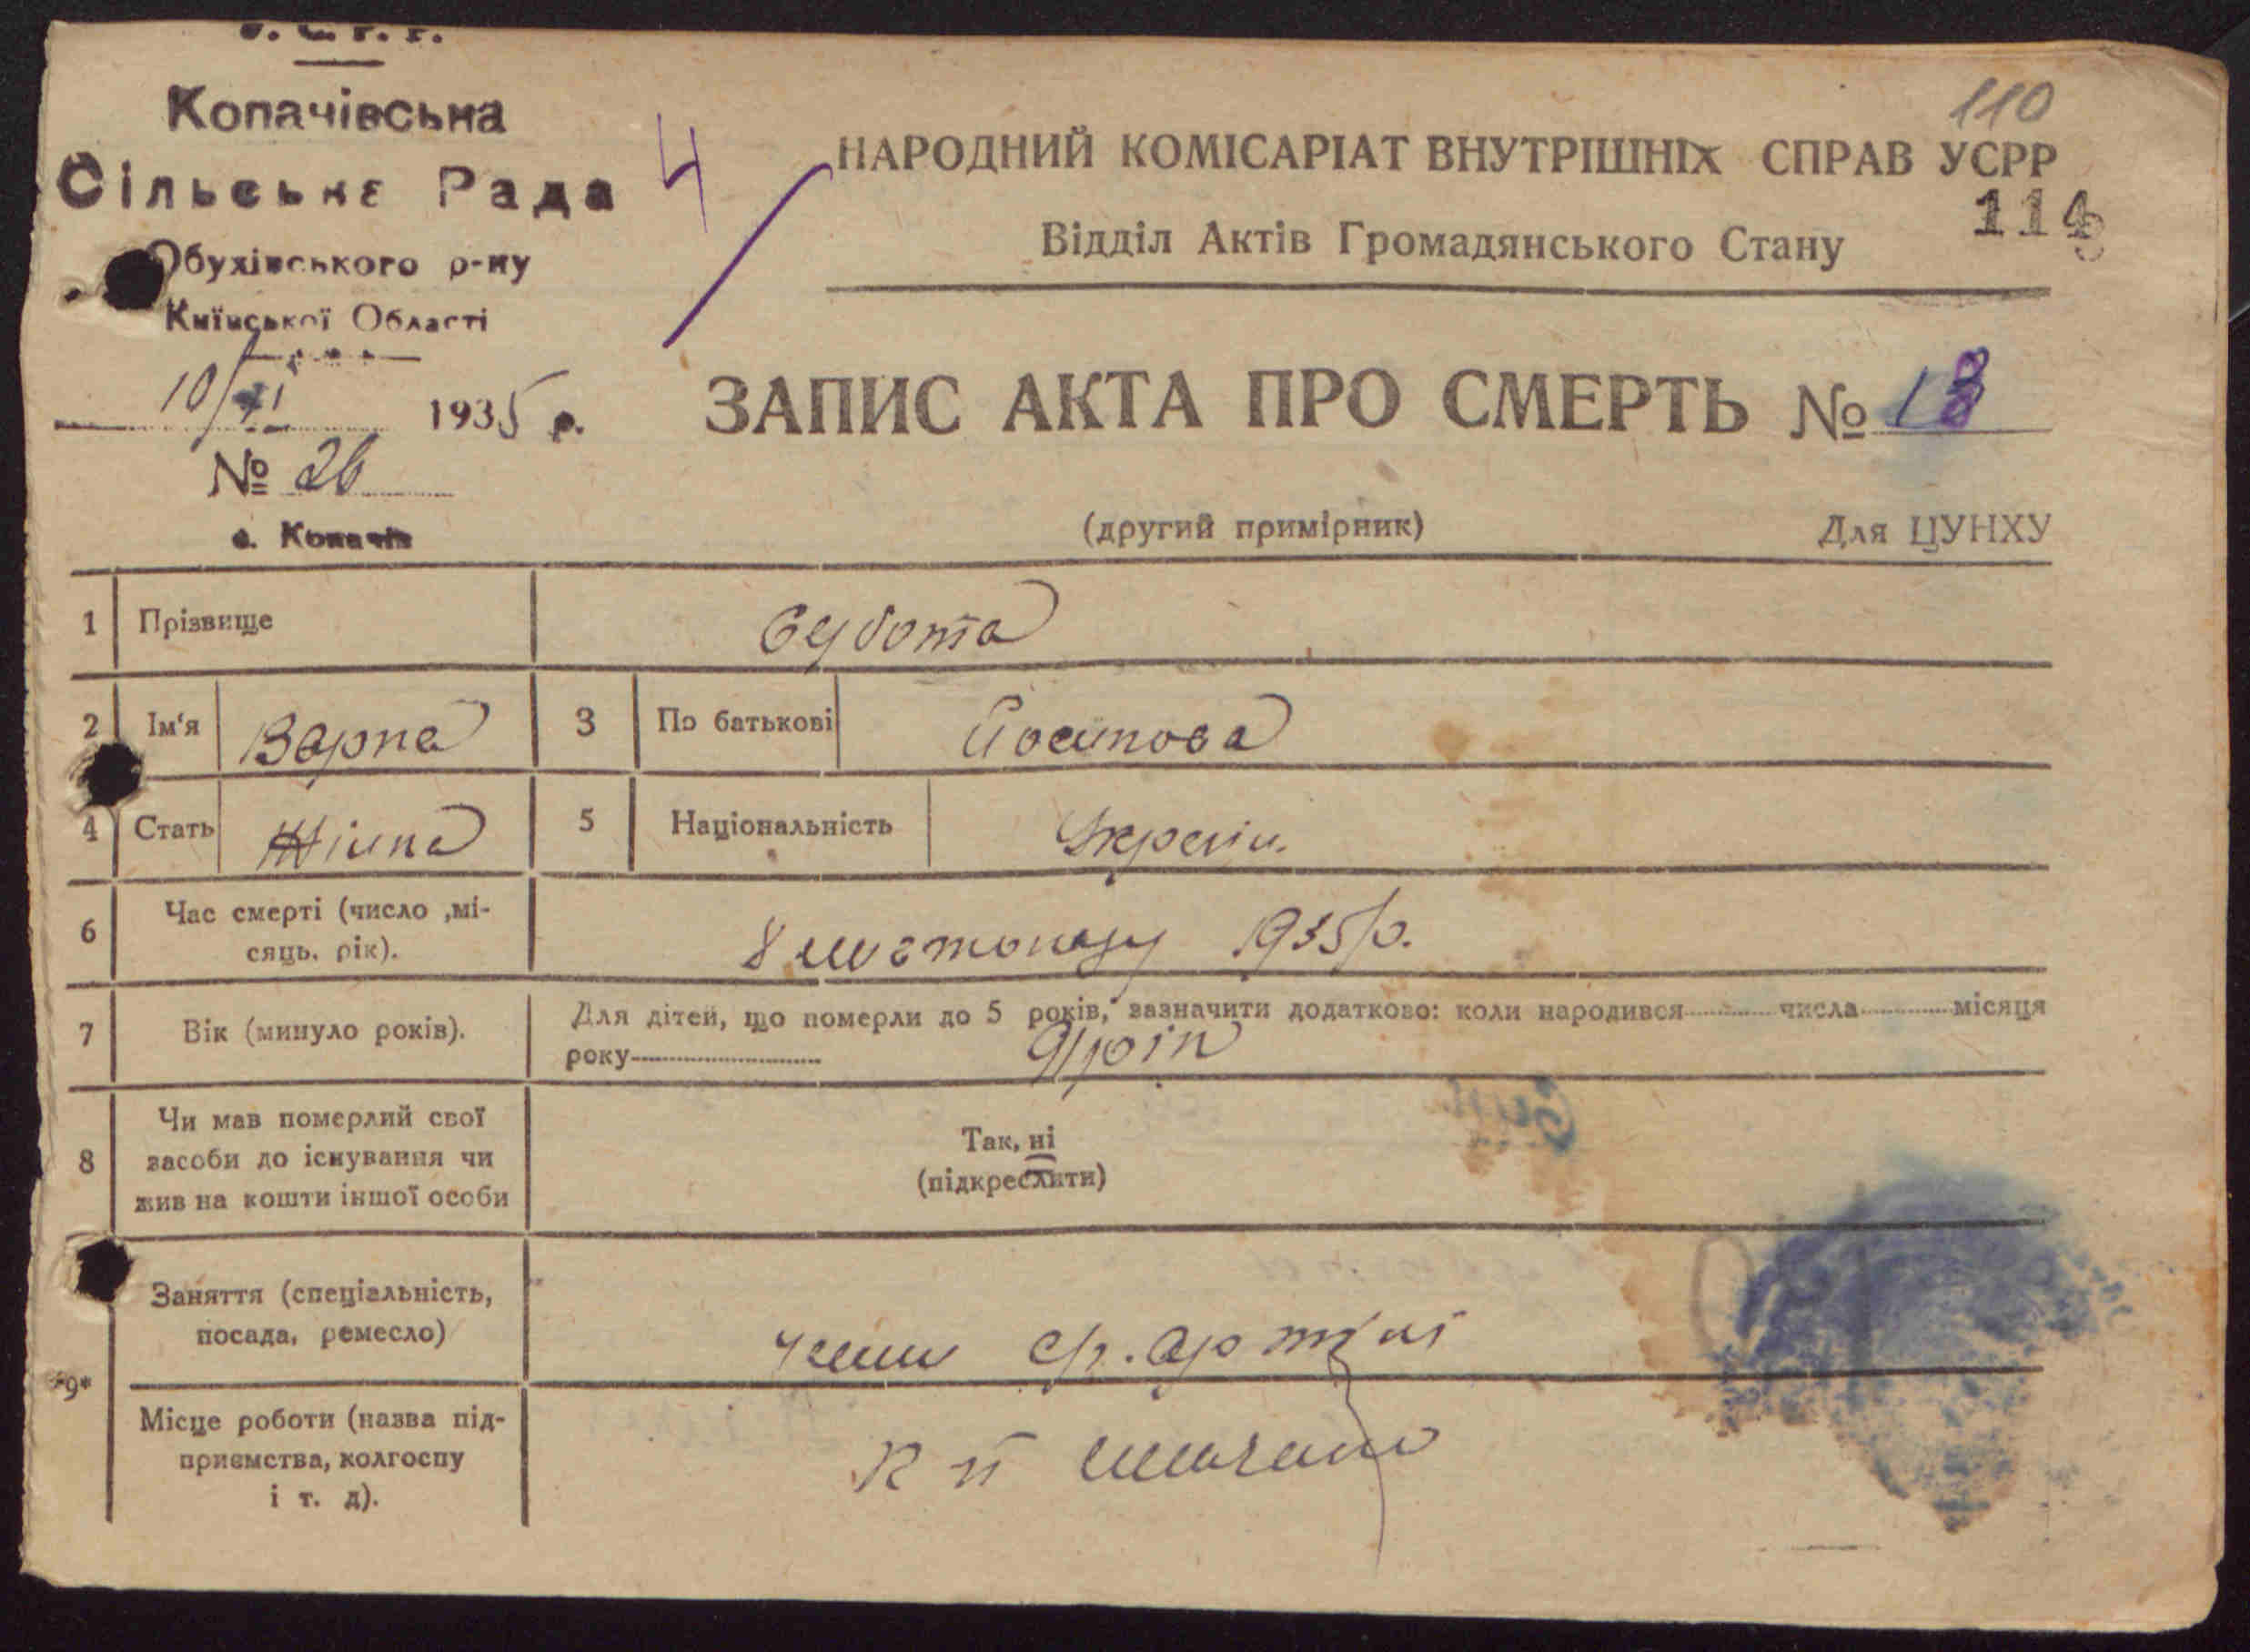 У. С. Р. Р.
Копачівська
Сільська Рада
Обухівського р-ну
Київської Області
10/XI 1935 р.
№ 26
с. Копачів
4
110
НАРОДНИЙ КОМІСАРІАТ ВНУТРІШНІХ СПРАВ УСРР
114
Відділ Актів Громадянського Стану
ЗАПИС АКТА ПРО СМЕРТЬ № 18
(другий примірник) Для ЦУНХУ
1 Прізвище Субота
2 Ім'я Варка 3 По батькові Йосипова
4 Стать Жінка 5 Національність Україн.
6 Час смерті (число ,мі-
сяць, рік). 8 листопаду 1935 р.
7 Вік (минуло років). Для дітей, що померли до 5 років, зазначити додатково: коли народився числа місяця
року 9 рік
8 Чи мав померлий свої
засоби до існування чи
жив на кошти іншої особи
Так, ні
(підкреслити)
9*
Заняття (спеціальність,
посада, ремесло)
член с/г. артілі
Місце роботи (назва під-
приємства, колгоспу
і т. д).